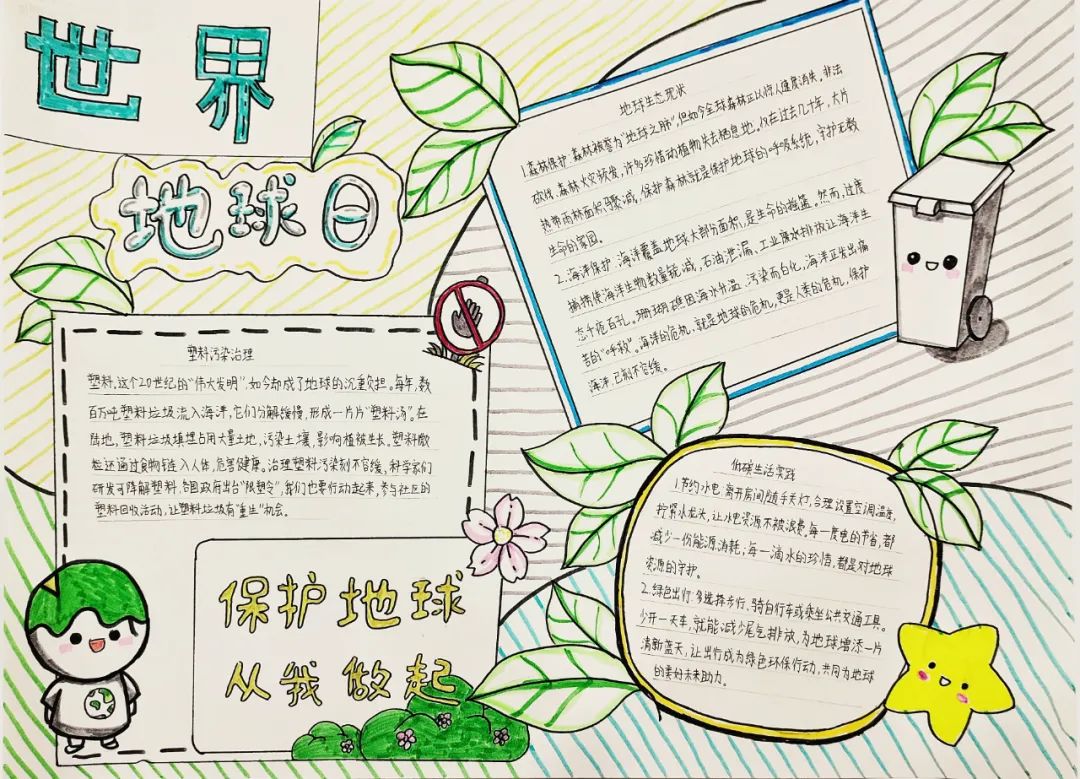 世界
地球日
地球生态现状
1.森林保护:森林被誉为“地球之肺”,但如今全球森林正以惊人速度消失。非法
砍伐、森林火灾频发,许多珍惜动植物失去栖息地。仅在过去几十年,大片
热带雨林面积骤减,保护森林就是保护地球的呼吸系统,守护无数
生命的家园。
2.海洋保护:海洋覆盖地球大部分面积,是生命的摇篮。然而,过度
捕捞使海洋生物数量锐减,石油泄漏、工业废水排放让海洋生
态千疮百孔。珊瑚礁因海水升温、污染而白化,海洋正发出痛
苦的“呼救”。海洋的危机,就是地球的危机,更是人类的危机,保护
海洋,已刻不容缓。
塑料污染治理
塑料,这个20世纪的“伟大发明”,如今却成了地球的沉重负担。每年,数
百万吨塑料垃圾流入海洋,它们分解缓慢,形成一片片“塑料汤”。在
陆地,塑料垃圾填埋占用大量土地,污染土壤,影响植被生长。塑料微
粒还通过食物链入人体,危害健康。治理塑料污染刻不容缓,科学家们
研发可降解塑料,各国政府出台“限塑令”,我们也要行动起来,参与社区的
塑料回收活动,让塑料垃圾有“重生”机会。
保护地球
从我做起
低碳生活实践
1.节约水电:离开房间随手关灯,合理设置空调温度,
拧紧水龙头,让水电资源不被浪费。每一度电的节省,都
减少一份能源消耗;每一滴水的珍惜,都是对地球
资源的守护。
2.绿色出行:多选择步行、骑自行车或乘坐公共交通工具。
少开一天车,就能减少尾气排放,为地球增添一片
清新蓝天,让出行成为绿色环保行动,共同为地球
的美好未来助力。